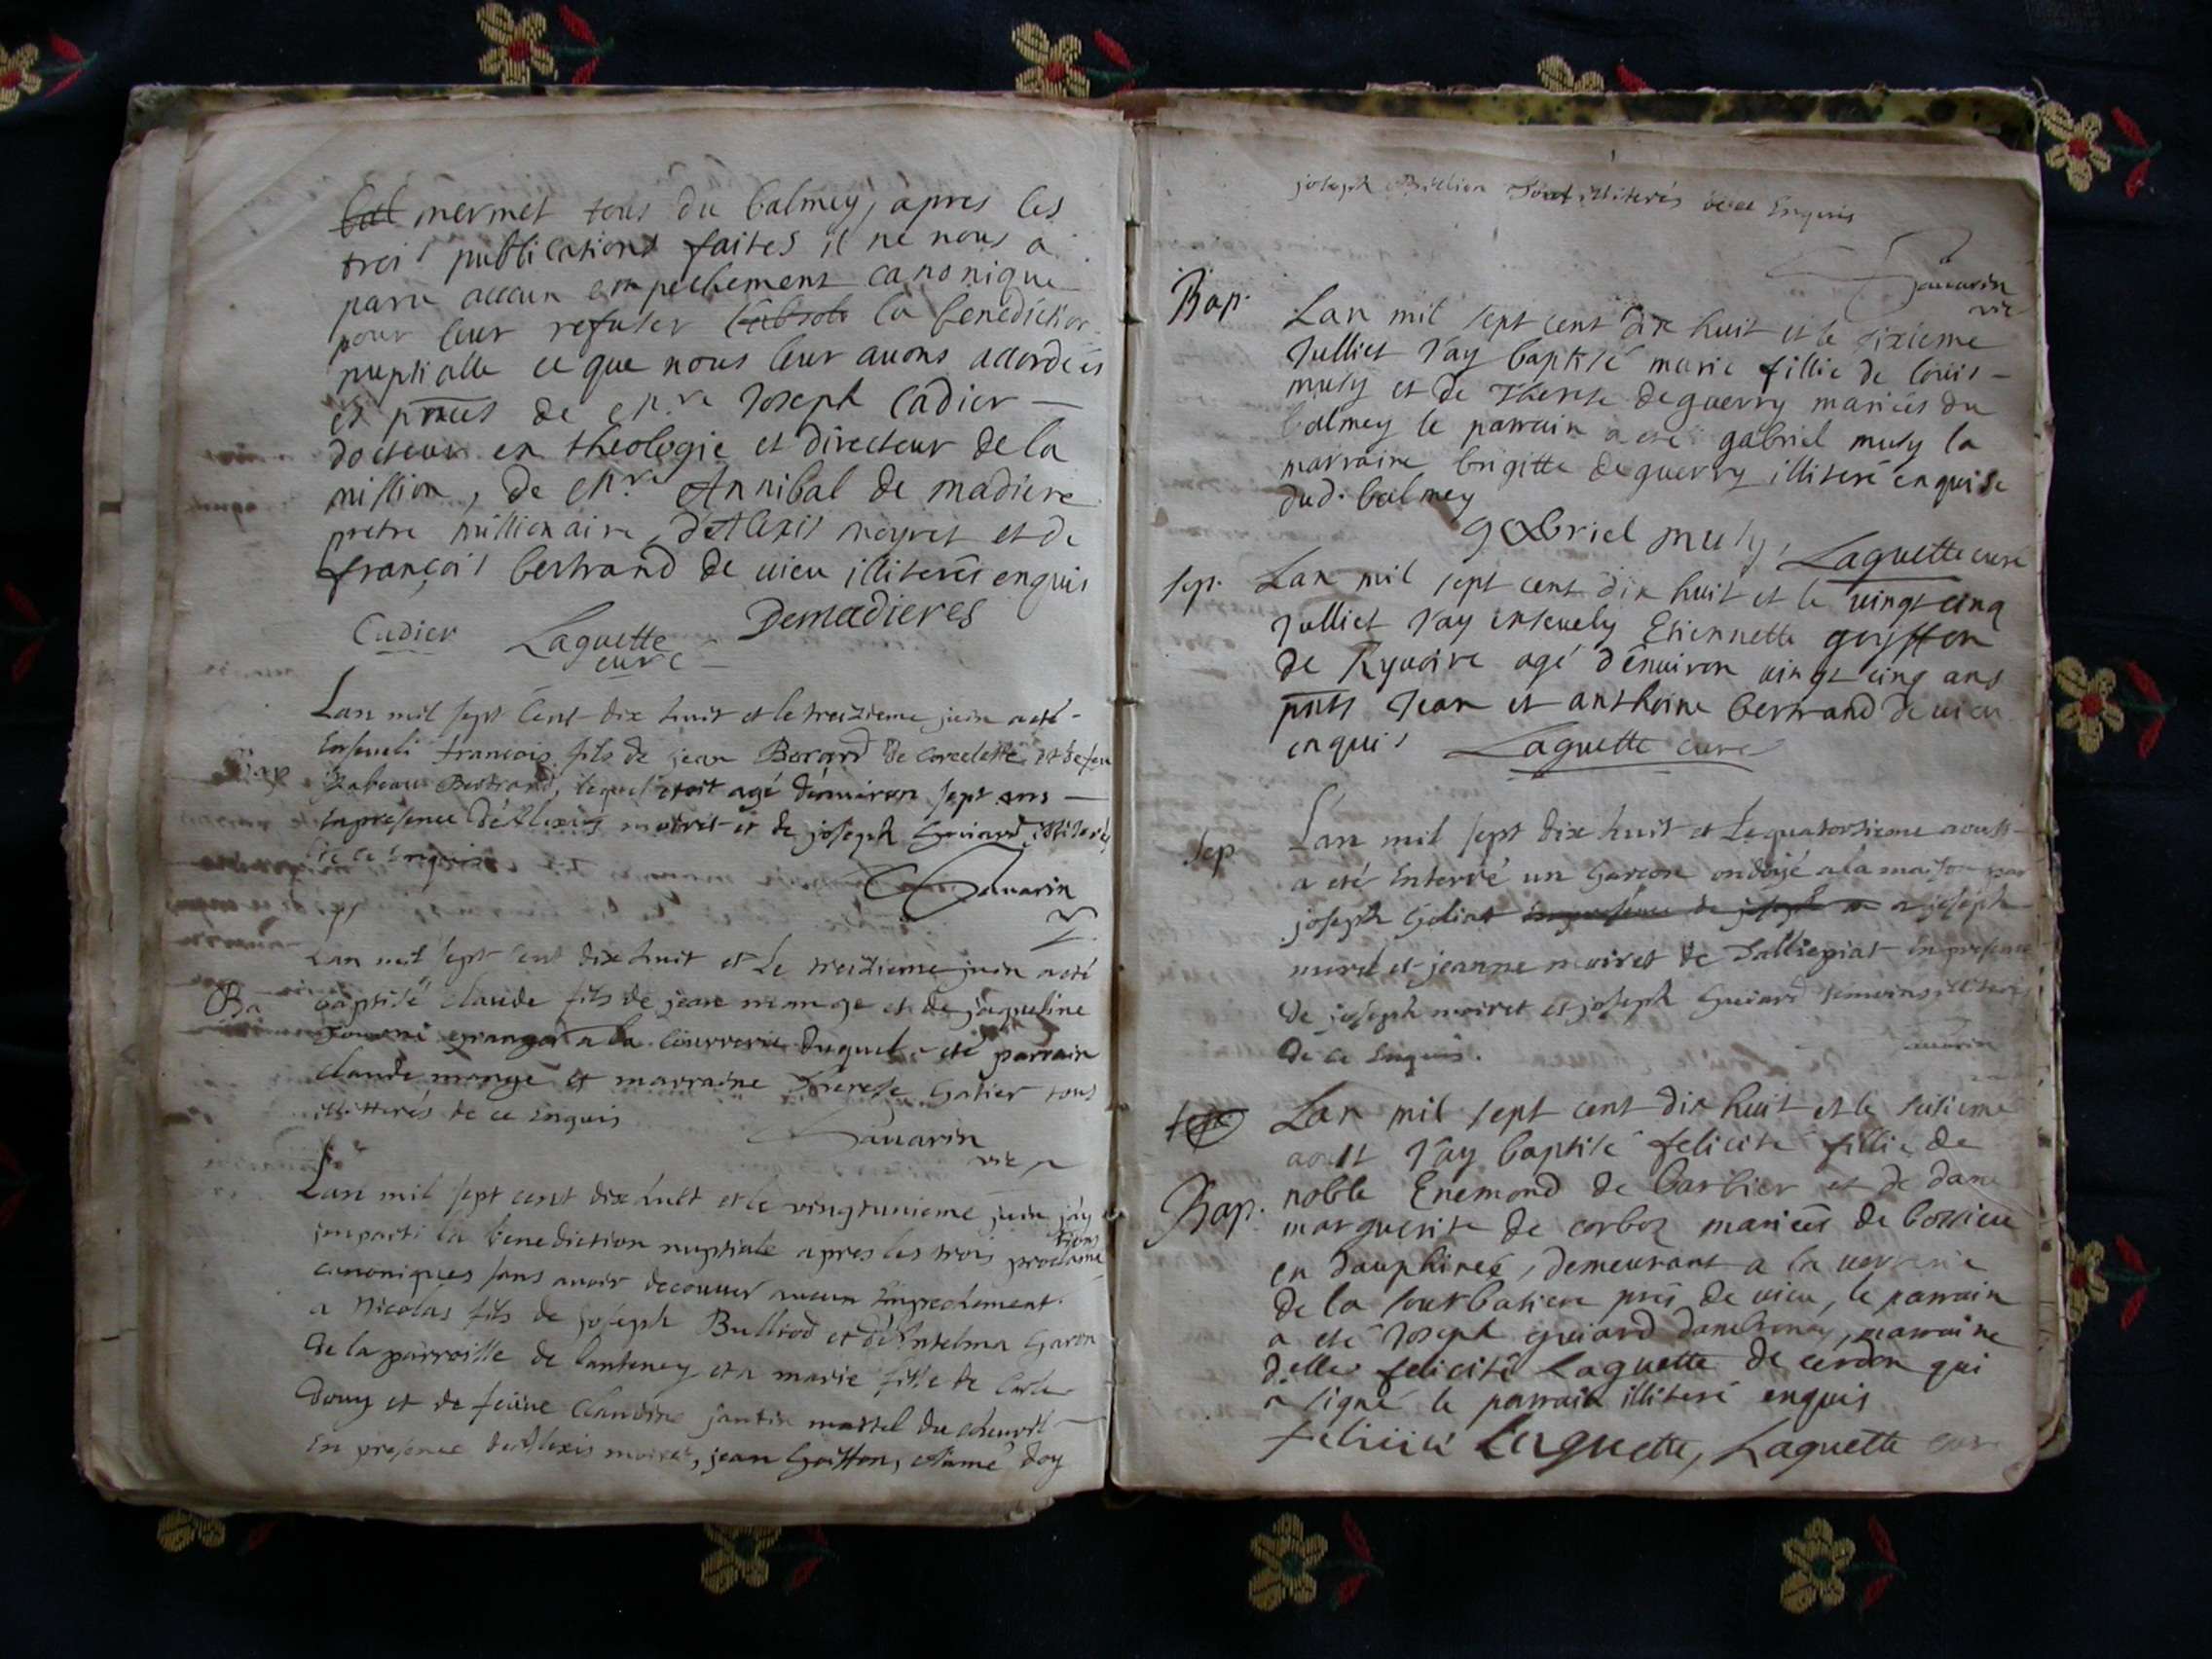 bal mermet tous du balmey, apres les
trois publications faites il ne nous a
paru aucun empechement canonique
pour leur refuser l'absolu la benediction
nuptialle ce que nous leur avons accordées
es pnces de Mre Joseph Cadier
docteur en theologie et directeur de la
mission, de Mre Annibal de madiere
pretre missionaire, d'Alexis moyret et de
françois bertrand de vieu illiterés enquis
Cadier Laguette Demadieres
curé
Lan mil sept Cent dix huit et le treizieme juin a eté
Enseveli francois fils de jean Berard de Corcelette et de feu
Isabeau Bertrand, lequel etoit agé d'enuiron sept ans
Enpresence d'Alexis moiret et de joseph Guiard illiterés
de ce enquis
Sauarin
Lan mil sept cent dix huit et Le treizieme juin a eté
Ba baptisé claude fils de jean mange et de jaqueline
granger a la Courrerie duquel a eté parrain
claude mange et marraine Therese Galier tous
illitterés de ce enquis
Sauarin
vic
Lan mil sept cent dix huit et le vingtunieme juin j'ay
imparti la benediction nuptiale apres les trois proclama
tions
canoniques sans auoir decouuer aucun Empechement
a Nicolas fils de joseph Bulliod et d'Antelma Garon
de la parroisse de lanteney et a marie fille de
Douy et de feüue Claudine jantin martel du
En presence d'Alexis moiret, jean Goiffon, Aimé doy
joseph Billion sont illiterés de ce Enquis
Sauarin
vic
Bap. Lan mil sept cent dix huit et le sixieme
Julliet J'ay baptisé marie fillie de louis
musy et de Therese deguerry mariés du
balmey le parrain a eté gabriel musy la
marraine brigitte deguerry illiteré enquise
dud. balmey
gabriel musy, Laguette curé
sep. Lan mil sept cent dix huit et le vingt cinq
Julliet J'ay ensevely Etiennette goyffon
de Ryvoire agé d'enuiron vingt cinq ans
pnts Jean et anthoine bertrand de vieu
enquis Laguette curé
Sep Lan mil sept dix huit et Lequatorsieme aoust
a eté Enterré un Garcon ondoyé a la maison par
joseph Goliat Enpresence de joseph m a joseph
muret et jeanne moiret de Salliegiat En presence
de joseph moiret et joseph Guiard temoins illiterés
de ce Enquis.
Sauarin
Lan mil sept cent dix huit et le seisieme
aoust J'ay baptisé felicité fillie de
Bap. noble Enemond de barbier et de dame
marguerite de corboz mariés de bossieu
en dauphineé, demeurant a la verrerie
de la sourbatiere prés de vieu, le parrain
a eté Joseph guiard dambronay, marraine
delle felicité Laguette de cerdon qui
a signé le parrain illiteré enquis
felicité Laguette, Laguette curé